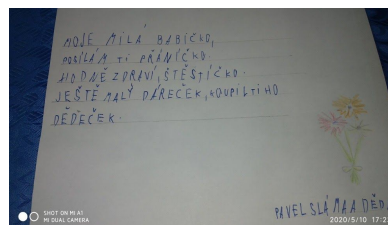 MOJE MILÁ BABIČKO,
POSÍLÁM TI PŘÁNÍČKO.
HODNĚ ZDRAVÍ, ŠTĚSTÍČKO.
JEŠTĚ MALÝ DÁREČEK, KOUPIL TI HO
DĚDEČEK.
PAVEL SLÁMA A DĚD
SHOT ON MI A1
MI DUAL CAMERA
2020/5/10 17:2